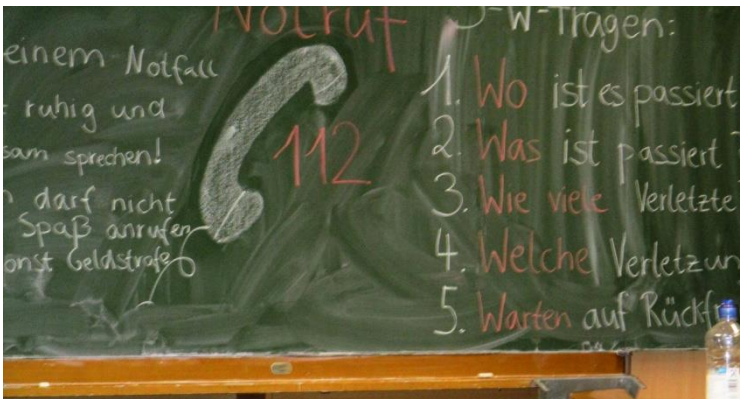 Notruf
einem Notfall
ruhig und
sam sprechen!
darf nicht
Spaß anrufen
onst Geldstrafe
112
5-W-Fragen:
1. Wo ist es passiert
2. Was ist passiert?
3. Wie viele Verletzte
4. Welche Verletzun
5. Warten auf Rückf